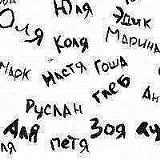 Юля
Эдик
Оля
Коля
Марина
Марк
Настя
Гоша
Глеб
Руслан
Аля
Петя
Зоя